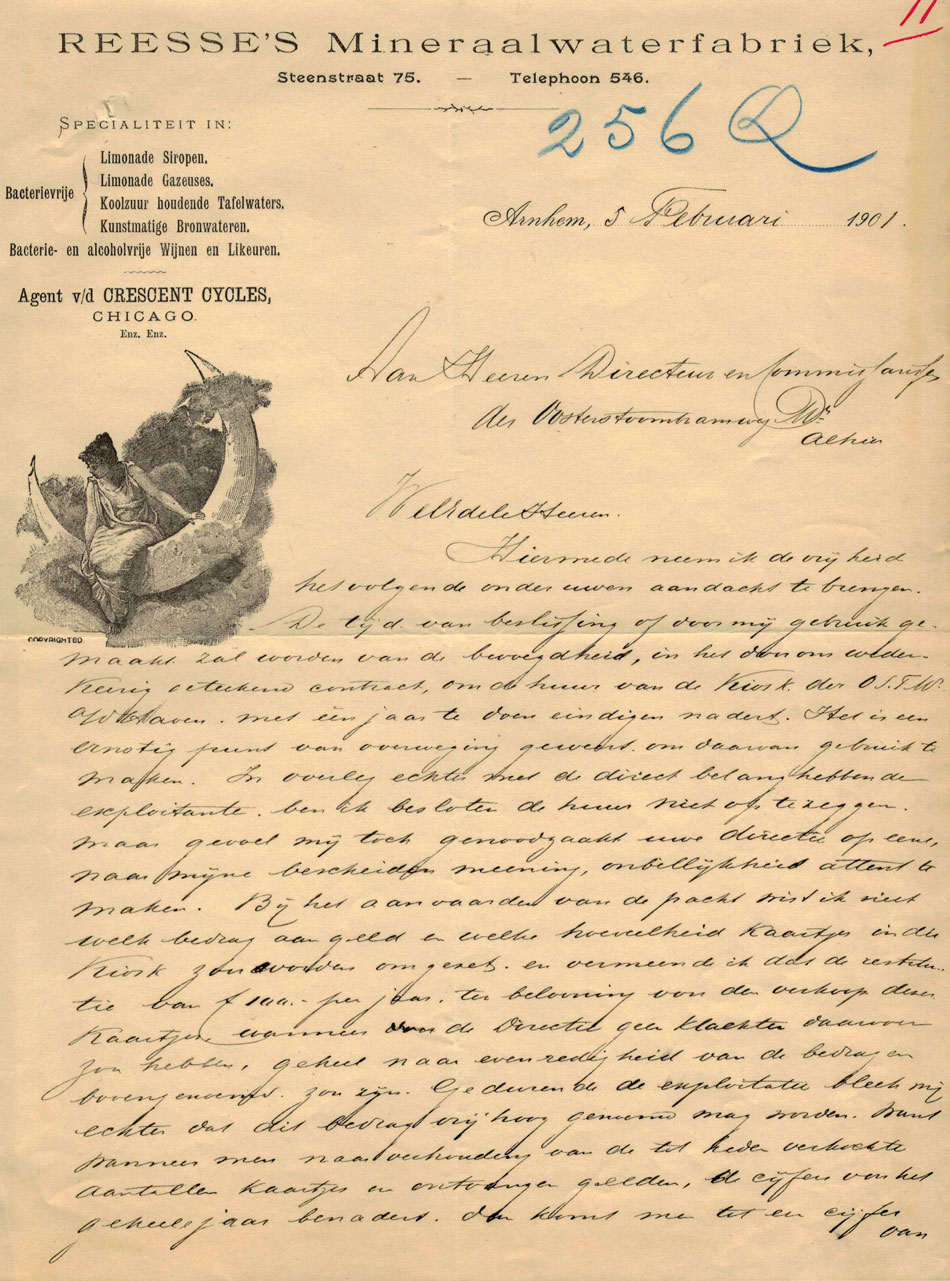 11
REESSE'S Mineraalwaterfabriek,
Steenstraat 75. — Telephoon 546.
256 Q
SPECIALITEIT IN:
Bacterievrije
Limonade Siropen.
Limonade Gazeuses.
Koolzuur houdende Tafelwaters.
Kunstmatige Bronwateren.
Bacterie- en alcoholvrije Wijnen en Likeuren.
Agent v/d CRESCENT CYCLES,
CHICAGO.
Enz. Enz.
Arnhem, 5 Februari 1901.
Aan Heeren Directeur en Commissarissen
der Oosterstoomtramweg Mij
Alhier
COPYRIGHTED
WelEdele Heeren.
Hiermede neem ik de vrijheid
het volgende onder uwen aandacht te brengen.
De tijd van beslissing of door mij gebruik ge-
maakt zal worden van de bevoegdheid, in het door ons weder-
keerig geteekend contract, om de huur van de Kiosk der O.S.T.W.
met één jaar te doen eindigen nadert. Het is een
ernstig punt van overweging geweest om daarvan gebruik te
maken. In overleg echter met de direct belanghebbende
exploitante ben ik besloten de huur niet op te zeggen.
maar gevoel mij toch genoodzaakt uwe directie op eene,
naar mijne bescheiden meening, onbillijkheid attent te
maken. Bij het aanvaarden van de pacht wist ik niet
welk bedrag aan geld en welke hoeveelheid kaartjes in die
Kiosk zou worden omgezet. en vermeende ik dat de restitu-
tie van f 100.- per jaar, ter belooning voor den verkoop dezer
Kaartjes, wanneer de Directie geen klachten daarover
zou hebben, geheel naar evenredigheid van de bedragen
bovengenoemd. zou zijn. Gedurende de exploitatie bleek mij
echter dat dit bedrag vrij hoog genoemd mag worden. Want
wanneer men naar verhouding van de tot heden verkochte
aantallen kaartjes en ontvangen gelden, de cijfers van het
geheele jaar benadert. dan komt men tot een cijfer
van